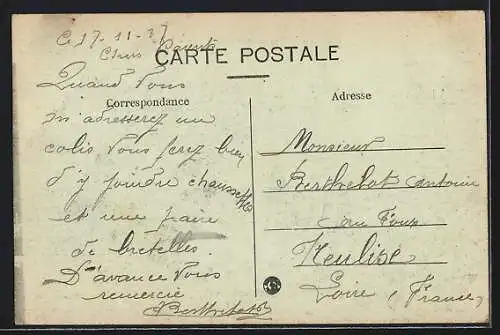 Ce 17-11-37
Chers Parents
CARTE POSTALE
Quand Vous
Correspondance
m'adresserez un
colis Vous ferez bien
d'y joindre chaussettes
et une paire
de bretelles.
D'avance Vous
remercie
Berthelot
Adresse
Monsieur
Berthelot Antoine
au
Neulise
Loire, (France)